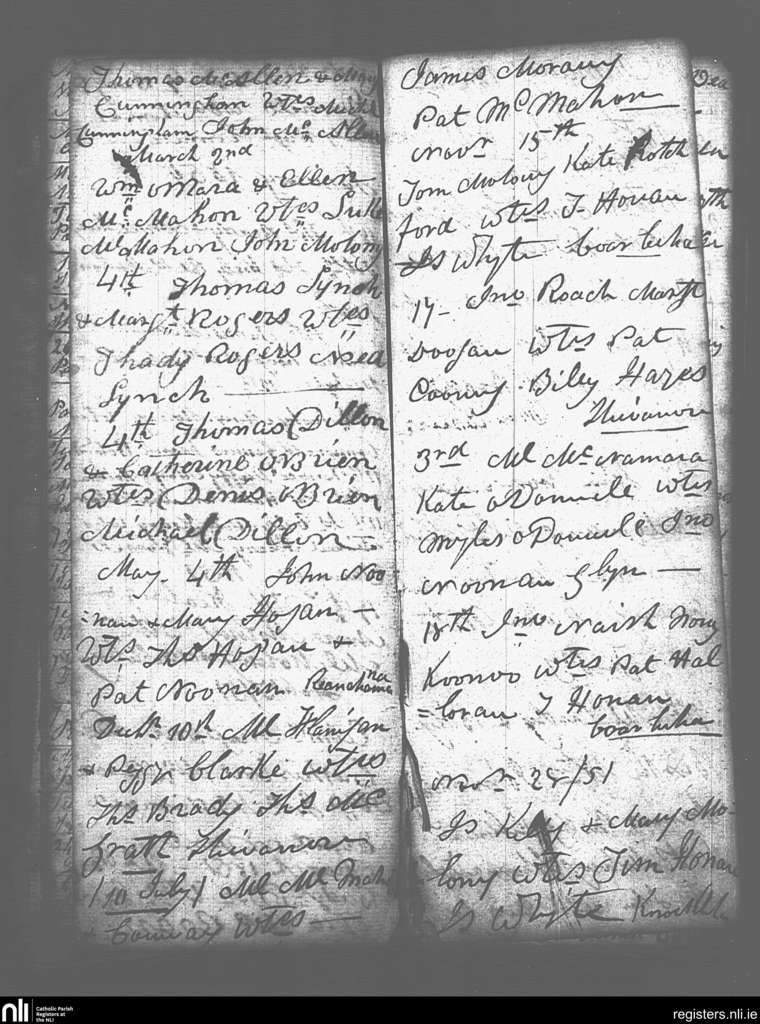 Thomas McAllen & Mary
Cunningham Wtes
Cunningham John McAllen
March 2nd
Wm oMara & Ellen
Mc Mahon Wtes
McMahon John Molony
4th Thomas Lynch
& Margt Rogers Wtes
Thady Rogers
Lynch
4th Thomas Dillon
& Catherine OBrien
Wtes Denis OBrien
Michael Dillon
May 4th John Noo
=nan & Mary Hogan
Wts Ths Hogan &
Pat Noonan
10th Ml Flanigan
& Peggy Clarke wtes
Ths Brady Ths Mc
Grath
10 July Ml Mc Mah
& Conway wtes
James Morony
Pat McMahon
Novr 15th
Tom Molony Kate
ford wtes T Honan
Js Whyte
17 Jno Roach Margt
Doogan wtes Pat
Coony Biley Hayes
3rd Ml McNamara
Kate oDonnele wtes
Myles oDonnele Jno
Noonan Glyn
18th Jno Naish
wtes Pat Hal
=loran T Honan
Novr 28/51
Js & Mary Mo-
lony wtes Tim Honan
Js Whyte
nli
Catholic Parish
Registers at
the NLI
registers.nli.ie